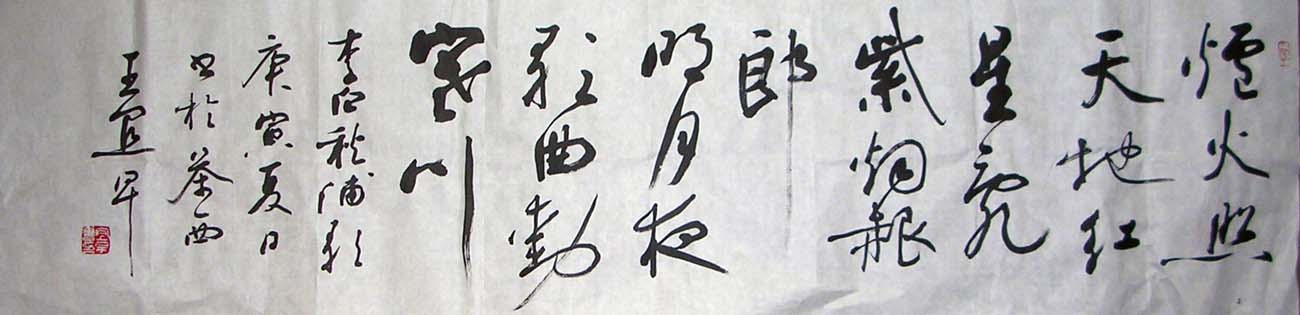 爐火照
天地紅
星亂
紫烟赧
郎
明月夜
歌曲動
寒川
李白秋浦歌
庚寅夏日
书於茶西
王